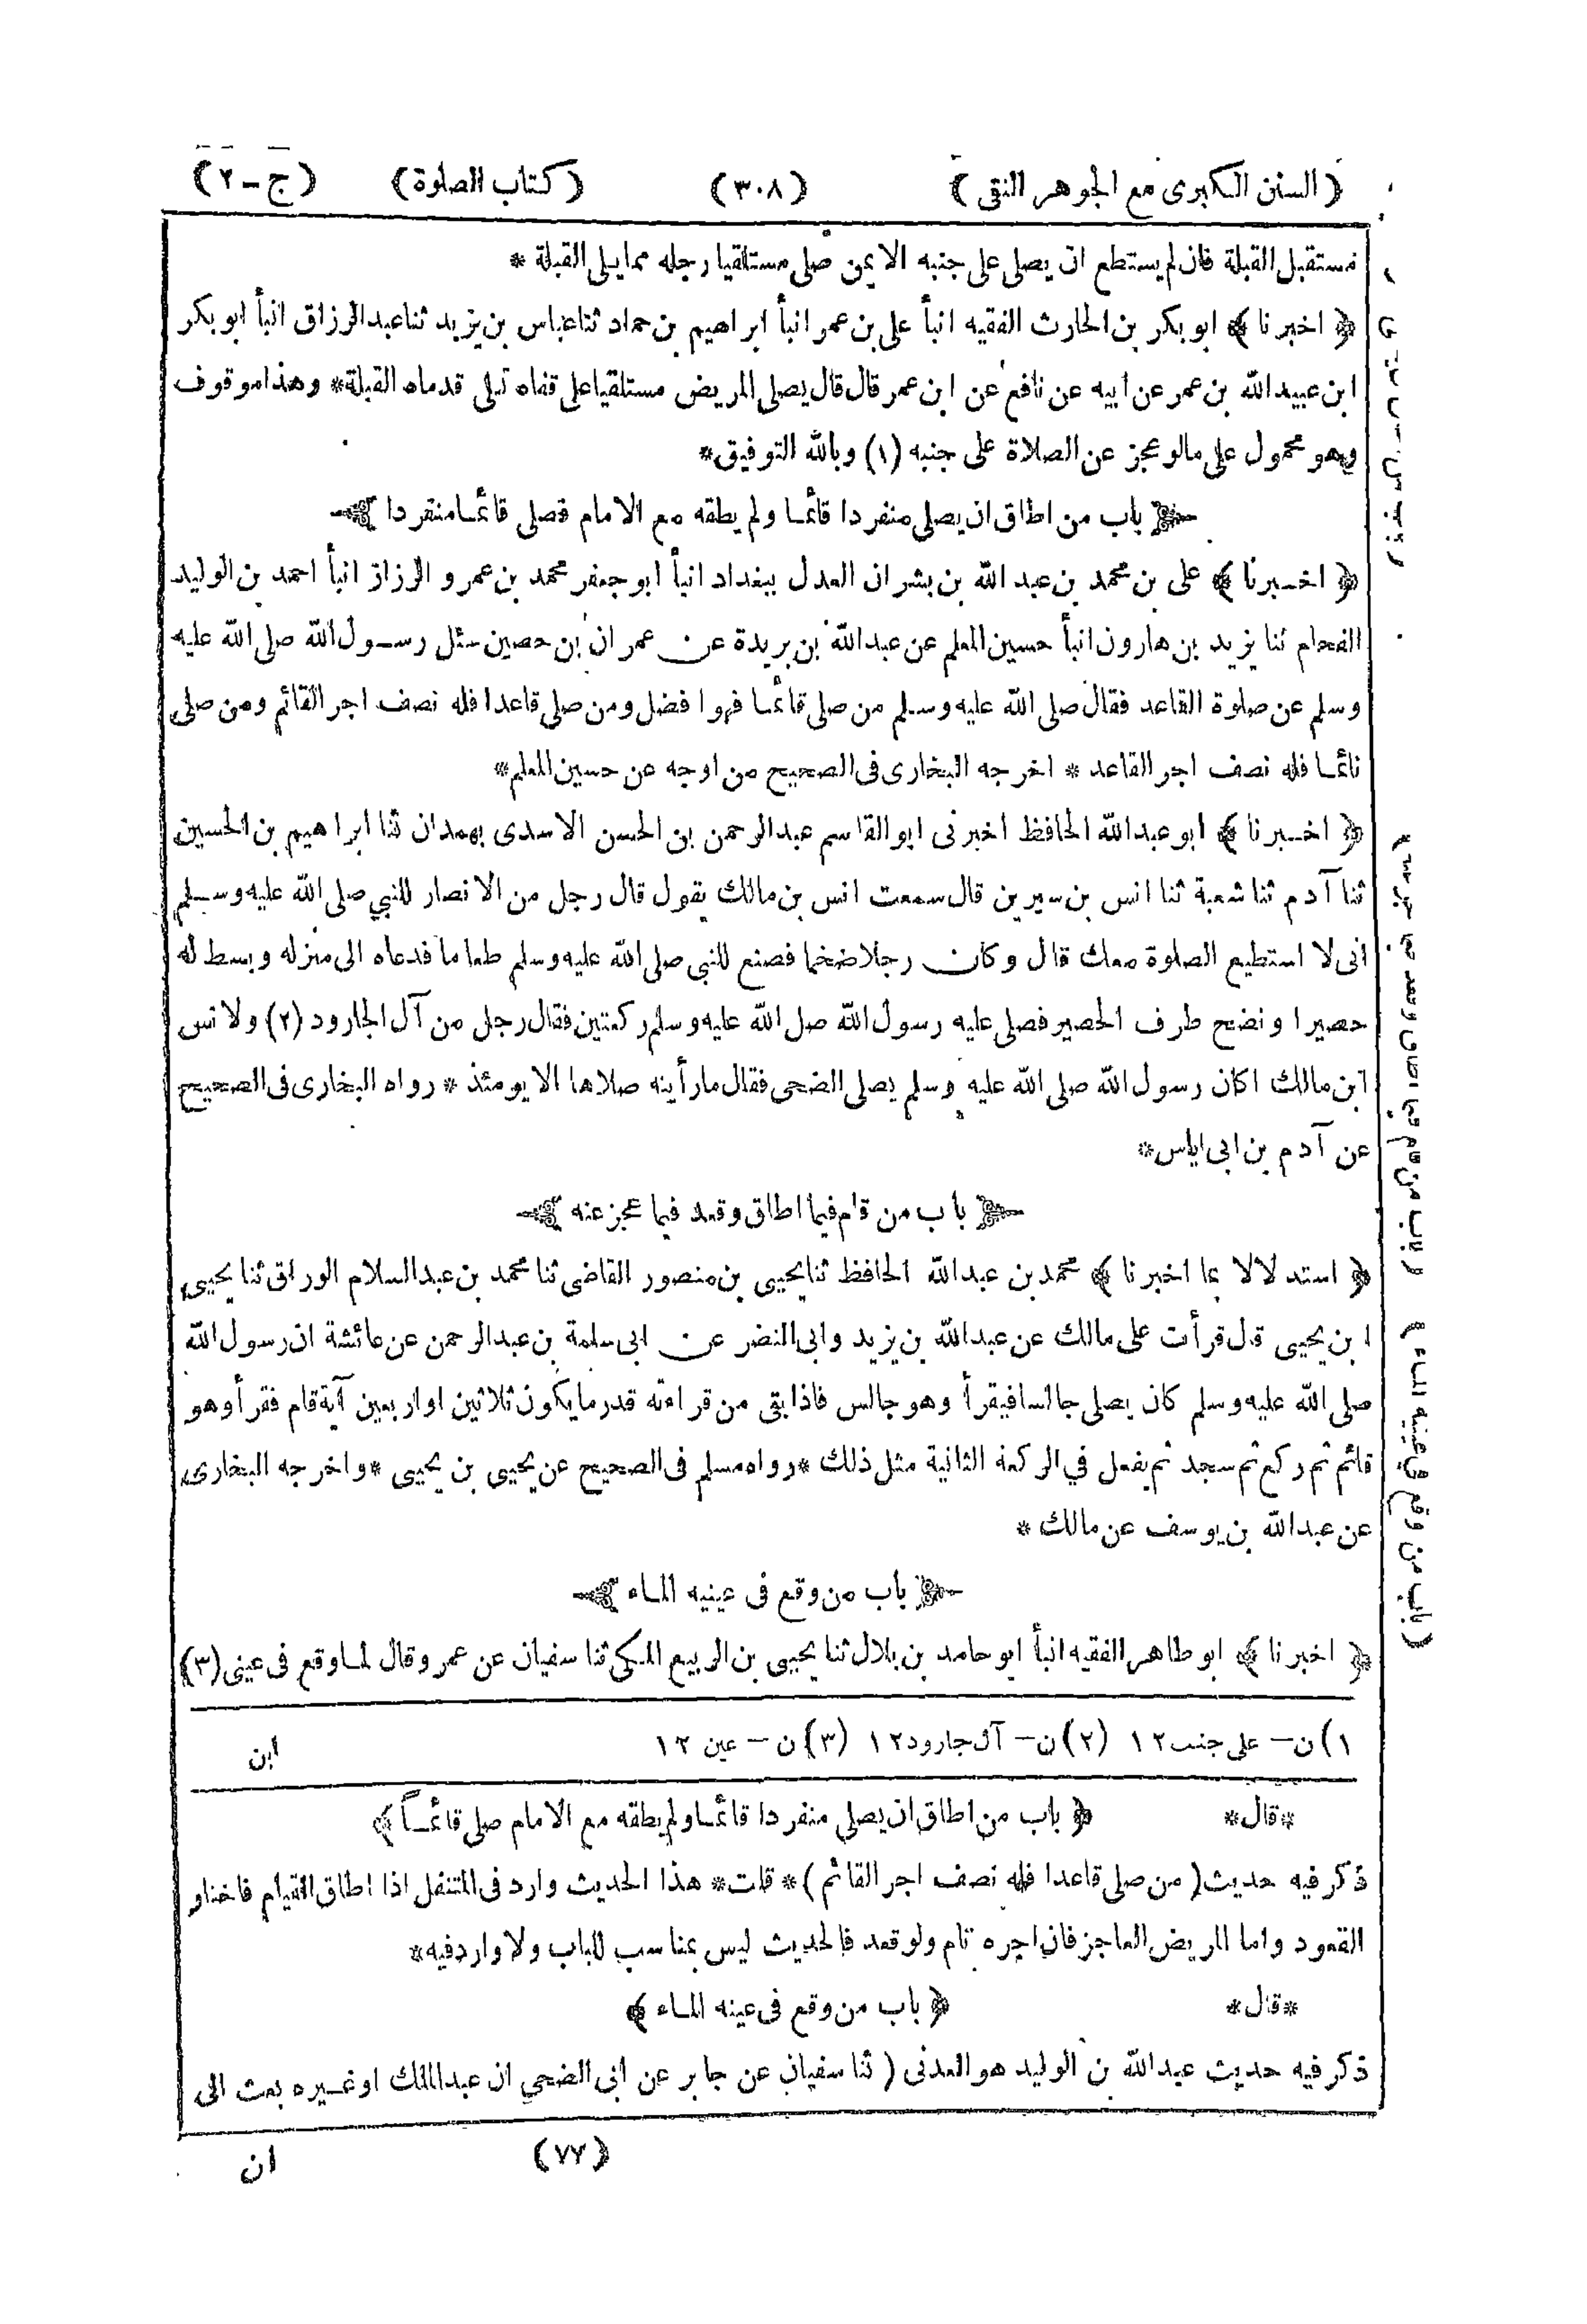 (السنن الكبرى مع الجوهر النقى) (٣٠٨) (كتاب الصلوة) (ج-٢)
مستقبل القبلة فان لم يستطع ان يصلى على جنبه الايمن صلى مستلقيا رجله مما يلى القبلة *
﴿ اخبرنا ﴾ ابو بكر بن الحارث الفقيه انبأ على بن عمر انبأ ابراهيم بن حماد ثنا عباس بن يزيد ثنا عبد الرزاق انبأ ابو بكر
ابن عبيد الله بن عمر عن ابيه عن نافع عن ابن عمر قال قال يصلى المريض مستلقيا على قفاه تلى قدماه القبلة * وهذا موقوف
وهو محمول على ما لو عجز عن الصلاة على جنبه (١) وبالله التوفيق *
باب من اطاق ان يصلى منفردا قائما ولم يطقه مع الامام فصلى قائما منفردا
﴿ اخبرنا ﴾ على بن محمد بن عبد الله بن بشران العدل ببغداد انبأ ابو جعفر محمد بن عمرو الرزاز انبأ احمد بن الوليد
الفحام ثنا يزيد بن هارون انبأ حسين المعلم عن عبد الله بن بريدة عن عمران بن حصين سئل رسول الله صلى الله عليه
وسلم عن صلوة القاعد فقال صلى الله عليه وسلم من صلى قائما فهو افضل ومن صلى قاعدا فله نصف اجر القائم ومن صلى
نائما فله نصف اجر القاعد * اخرجه البخارى فى الصحيح من اوجه عن حسين المعلم *
﴿ اخبرنا ﴾ ابو عبد الله الحافظ اخبرنى ابو القاسم عبد الرحمن بن الحسن الاسدى بهمدان ثنا ابراهيم بن الحسين
ثنا آدم ثنا شعبة ثنا انس بن سيرين قال سمعت انس بن مالك يقول قال رجل من الانصار للنبي صلى الله عليه وسلم
انى لا استطيع الصلوة معك قال وكان رجلا ضخما فصنع للنبي صلى الله عليه وسلم طعاما فدعاه الى منزله وبسط له
حصيرا ونضح طرف الحصير فصلى عليه رسول الله صلى الله عليه وسلم ركعتين فقال رجل من آل الجارود (٢) ولانس
ابن مالك اكان رسول الله صلى الله عليه وسلم يصلى الضحى فقال ما رأيته صلاها الا يومئذ * رواه البخارى فى الصحيح
عن آدم بن ابى اياس *
باب من قام فيما اطاق وقعد فيما عجز عنه
﴿ استدلالا بما اخبرنا ﴾ محمد بن عبد الله الحافظ ثنا يحيى بن منصور القاضى ثنا محمد بن عبد السلام الوراق ثنا يحيى
ابن يحيى قال قرأت على مالك عن عبد الله بن يزيد وابى النضر عن ابى سلمة بن عبد الرحمن عن عائشة ان رسول الله
صلى الله عليه وسلم كان يصلى جالسا فيقرأ وهو جالس فاذا بقى من قراءته قدر ما يكون ثلاثين او اربعين آية قام فقرأ وهو
قائم ثم ركع ثم سجد ثم يفعل في الركعة الثانية مثل ذلك * رواه مسلم فى الصحيح عن يحيى بن يحيى * واخرجه البخارى
عن عبد الله بن يوسف عن مالك *
باب من وقع فى عينيه الماء
﴿ اخبرنا ﴾ ابو طاهر الفقيه انبأ ابو حامد بن بلال ثنا يحيى بن الربيع المكى ثنا سفيان عن عمرو قال لما وقع فى عينى (٣)
١) ن - على جنب ١٢ (٢) ن - آل جارود ١٢ (٣) ن - عين ١٢
ابن
*قال* ﴿ باب من اطاق ان يصلى منفردا قائما ولم يطقه مع الامام صلى قائماً ﴾
ذكر فيه حديث (من صلى قاعدا فله نصف اجر القائم) * قلت * هذا الحديث وارد فى المتنفل اذا اطاق القيام فاختار
القعود واما المريض العاجز فان اجره تام ولو قعد فالحديث ليس بمناسب للباب ولا وارد فيه *
*قال* ﴿ باب من وقع فى عينه الماء ﴾
ذكر فيه حديث عبد الله بن الوليد هو العدنى (ثنا سفيان عن جابر عن ابى الضحى ان عبد الملك او غيره بعث الى
(٧٧) ان
(باب من قام فيما اطاق وقعد فيما عجز عنه)
(باب من وقع فى عينه الماء)